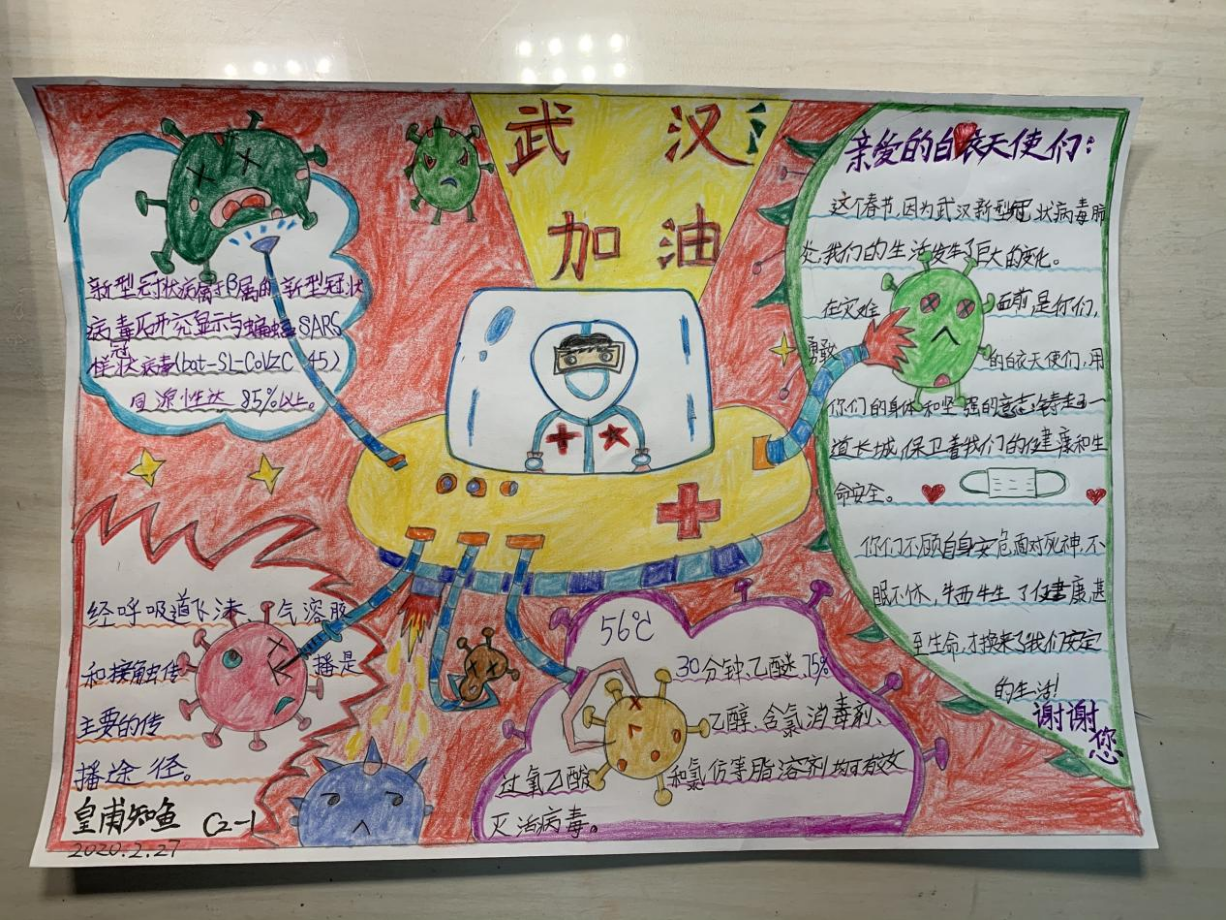 武汉
加油
新型冠状病属于β属的新型冠状
病毒研究显示与蝙蝠SARS
样冠状病毒(bat-SL-CoVZC 45)
同源性达85%以上。
亲爱的白衣天使们:
这个春节,因为武汉新型冠状病毒肺
炎,我们的生活发生了巨大的变化。
在灾难面前是你们,
勇敢的白衣天使们,用
你们的身体和坚强的意志铸起了一
道长城,保卫着我们的健康和生
命安全。
你们不顾自身安危面对死神,不
眠不休,牺牲了健康甚
至生命,才换来了我们安定
的生活!
谢谢您
经呼吸道飞沫、气溶胶
和接触传播是
主要的传
播途径。
56℃
30分钟、乙醚、75%
乙醇、含氯消毒剂、
过氧乙酸和氯仿等脂溶剂均可有效
灭活病毒。
皇甫知鱼 C2-1
2020.2.27